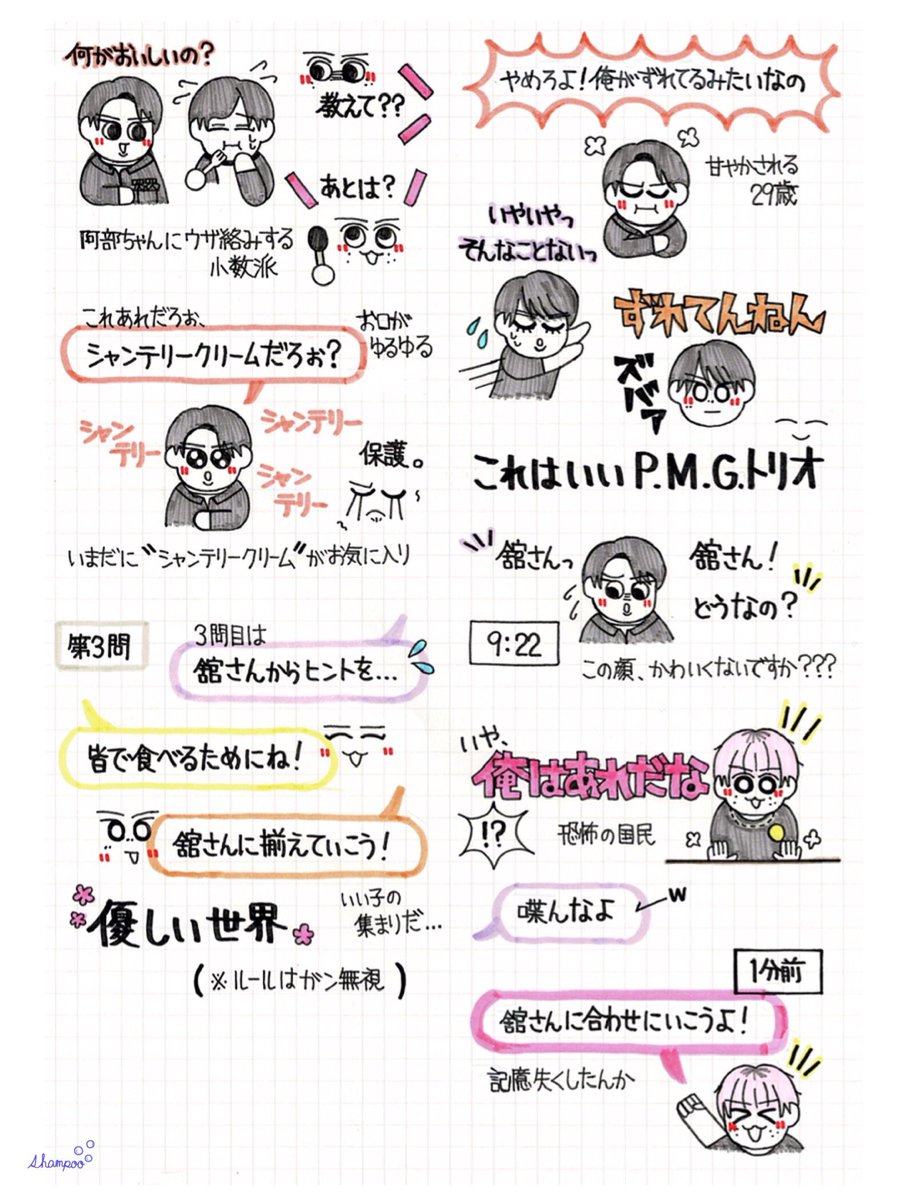 何がおいしいの?
教えて??
あとは?
阿部ちゃんにウザ絡みする
小数派
これあれだろぉ、
シャンテリークリームだろぉ?
お口が
ゆるゆる
シャン
テリー
シャンテリー
シャン
テリー
保護。
いまだに“シャンテリークリーム”がお気に入り
第3問
3問目は
舘さんからヒントを...
皆で食べるためにね!
舘さんに揃えていこう!
優しい世界
いい子の
集まりだ...
(※ルールはガン無視)
やめろよ!俺がずれてるみたいなの
甘やかされる
29歳
いやいやっ
そんなことないっ
ずれてんねん
ズバァ
これはいいP.M.G.トリオ
舘さんっ
舘さん!
どうなの?
9:22
この顔、かわいくないですか???
いや、
俺はあれだな
!?
恐怖の国民
喋んなよ
w
1分前
舘さんに合わせにいこうよ!
記憶失くしたんか
Shampoo